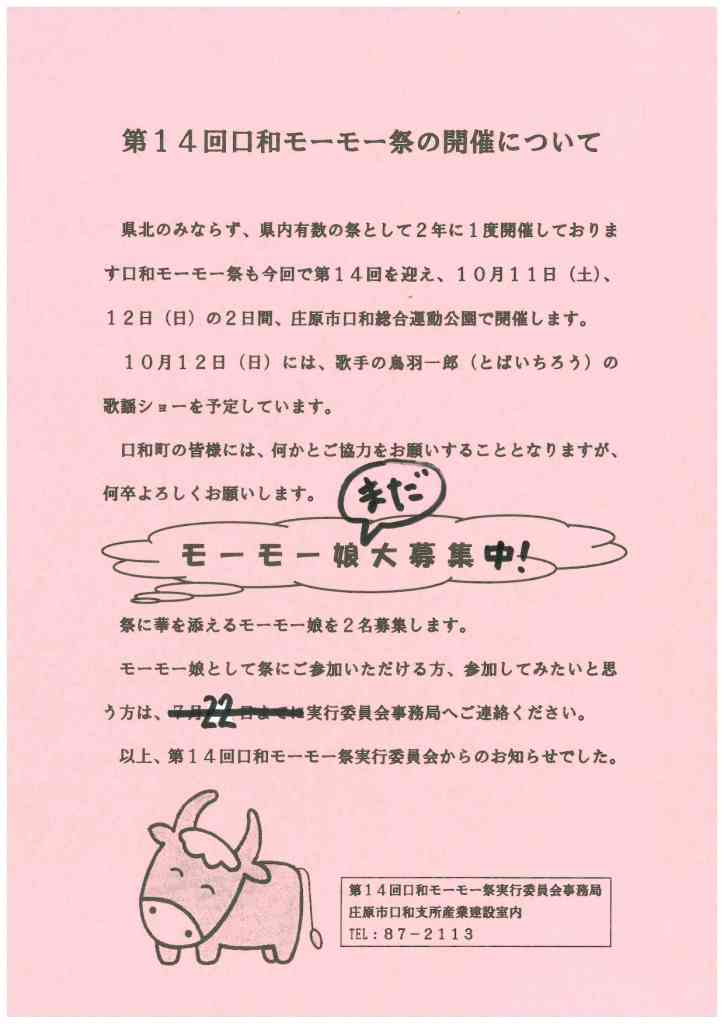 第１４回口和モーモー祭の開催について
県北のみならず、県内有数の祭として２年に１度開催しておりま
す口和モーモー祭も今回で第１４回を迎え、１０月１１日（土）、
１２日（日）の２日間、庄原市口和総合運動公園で開催します。
１０月１２日（日）には、歌手の鳥羽一郎（とばいちろう）の
歌謡ショーを予定しています。
口和町の皆様には、何かとご協力をお願いすることとなりますが、
何卒よろしくお願いします。
まだ
モーモー娘大募集中！
祭に華を添えるモーモー娘を２名募集します。
モーモー娘として祭にご参加いただける方、参加してみたいと思
う方は、７月22日までに実行委員会事務局へご連絡ください。
以上、第１４回口和モーモー祭実行委員会からのお知らせでした。
第１４回口和モーモー祭実行委員会事務局
庄原市口和支所産業建設室内
TEL：８７－２１１３